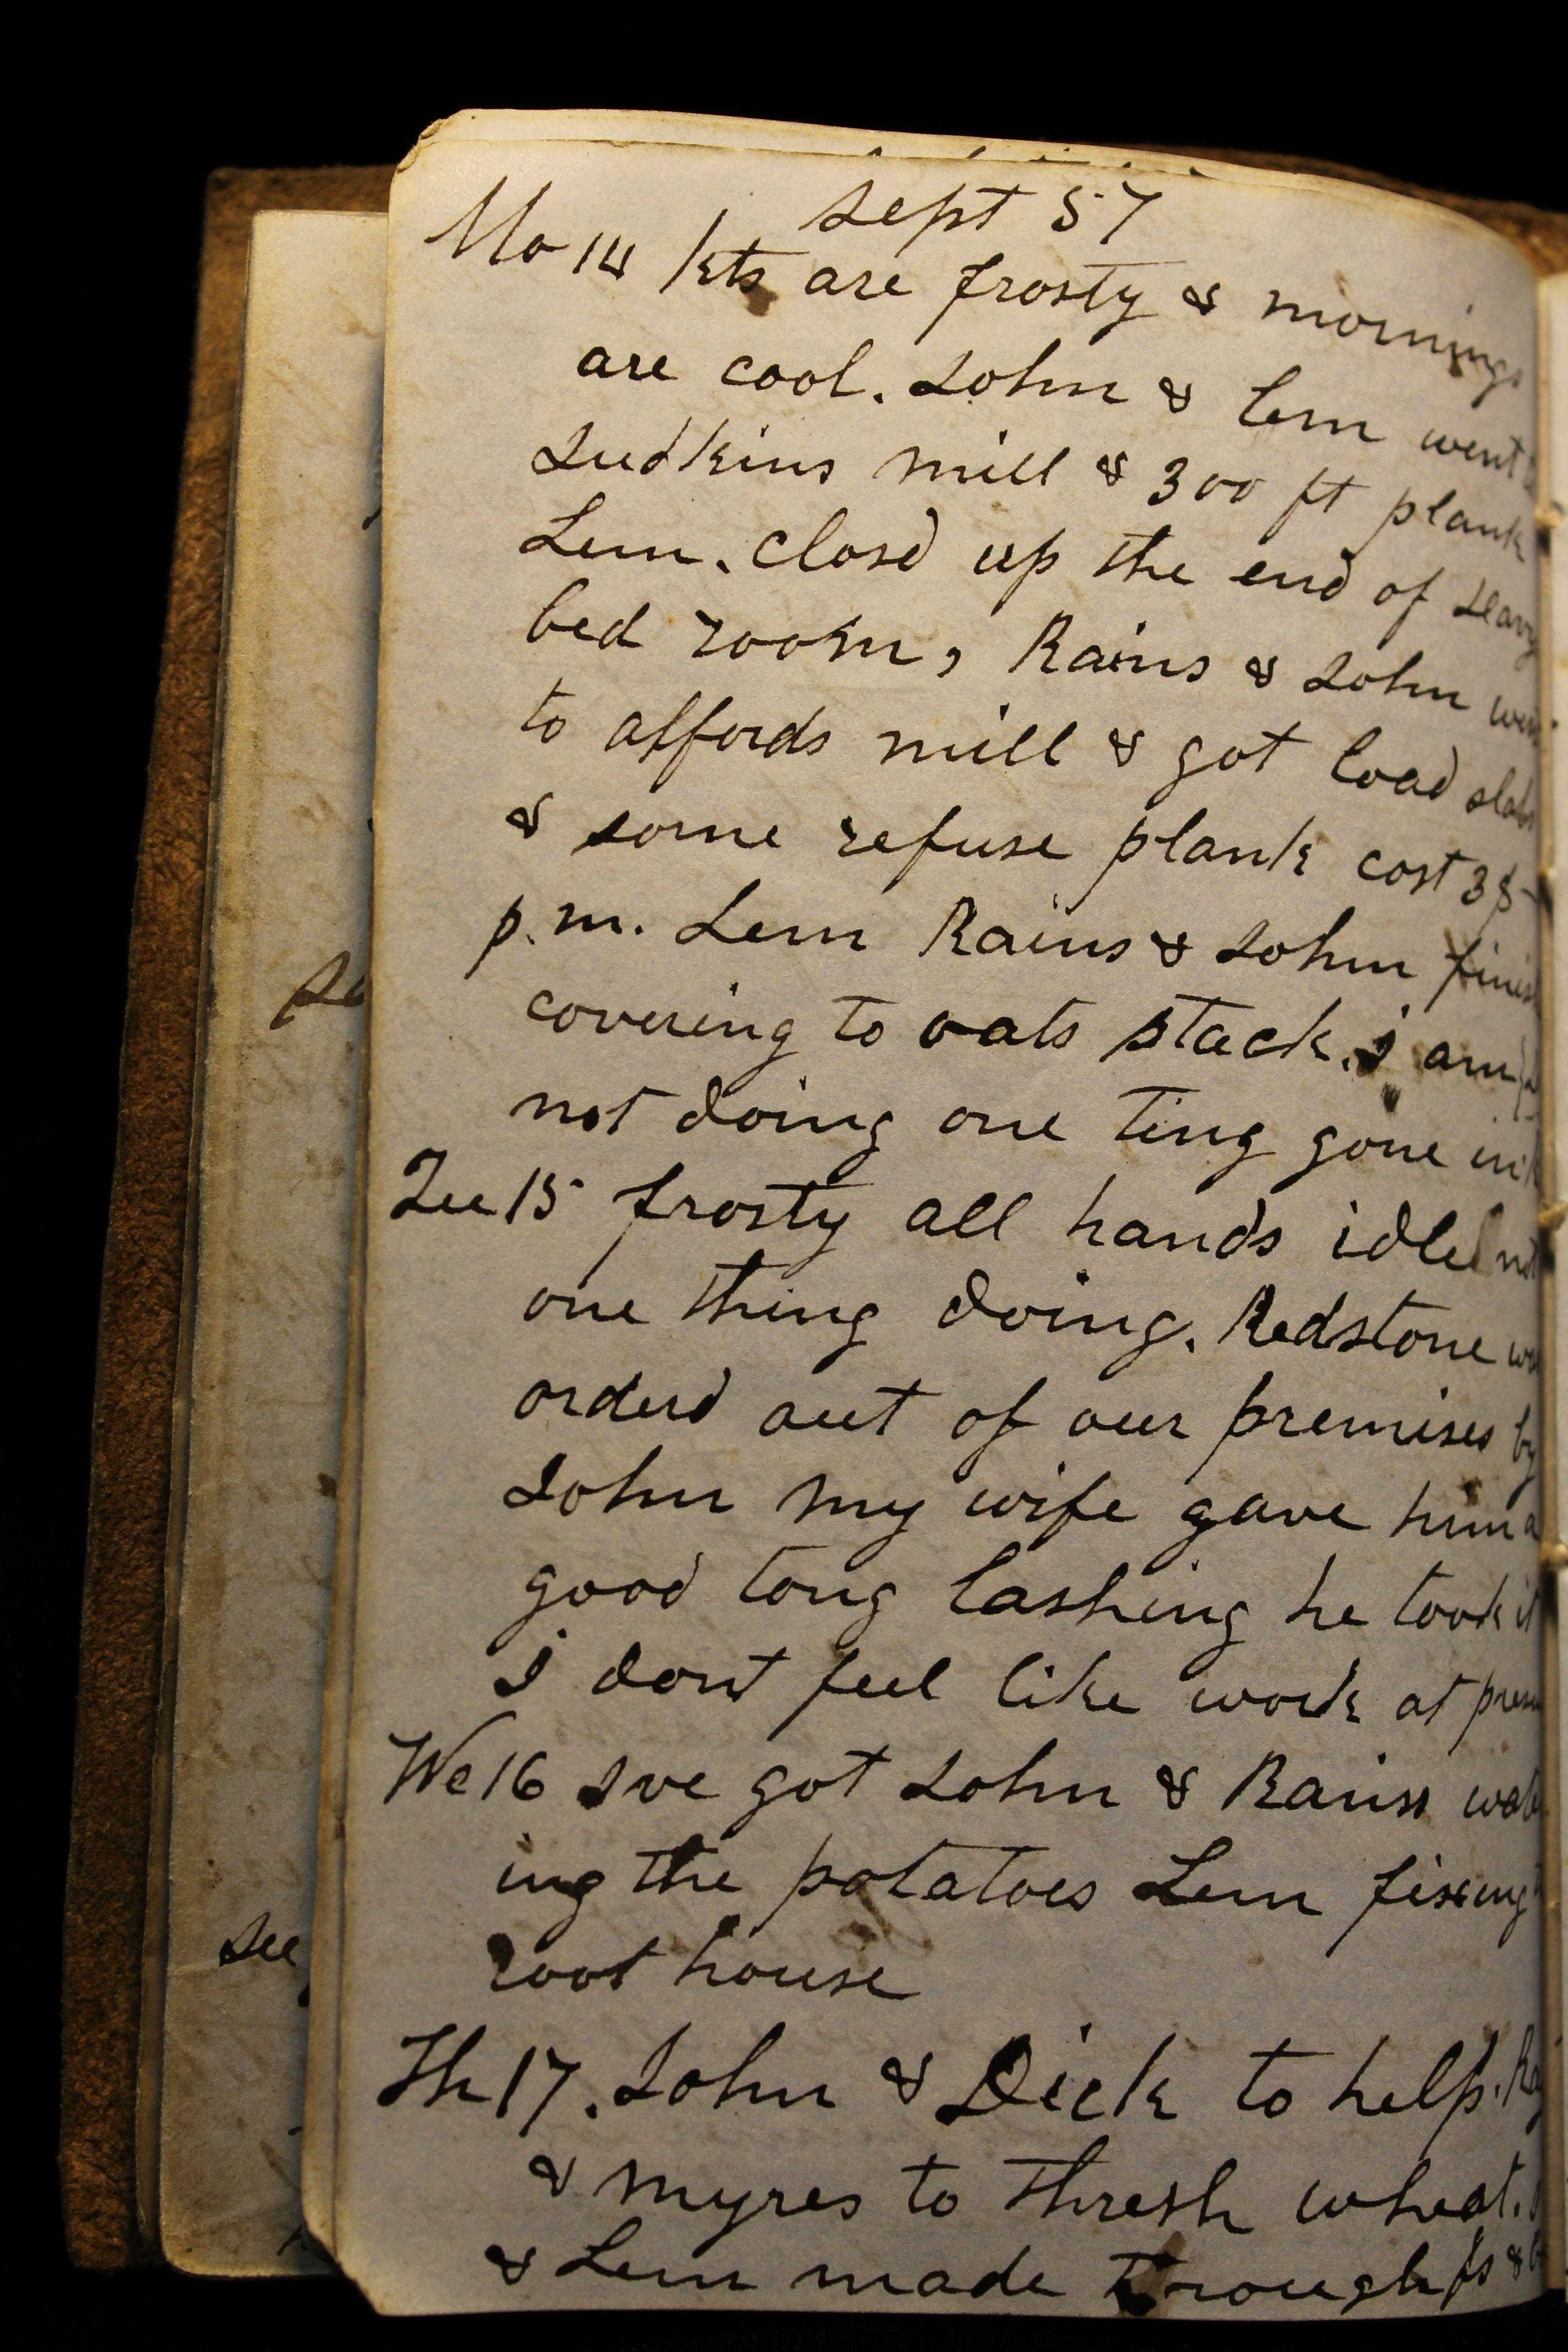 Sept 57
Mo 14 are frosty & mornings
are cool. John & Lem went
Judkins mill & 300 ft plank
Lem. closd up the end of
bed room, Rains & John
to affords mill & got load slabs
& some refuse plank cost 3$
p.m. Lem Rains & John
covering to oats stack. i am
not doing one ting gone
Tu 15 frosty all hands idle
one thing doing. Redstone
orderd out of our premises by
John my wife gave him a
good tong lashing he took it
I dont feel like work at
We 16 Ive got John & Rains
ing the potatoes Lem fixing
root house
Th 17. John & Dick to help.
& myres to thresh wheat.
& Lem made trough